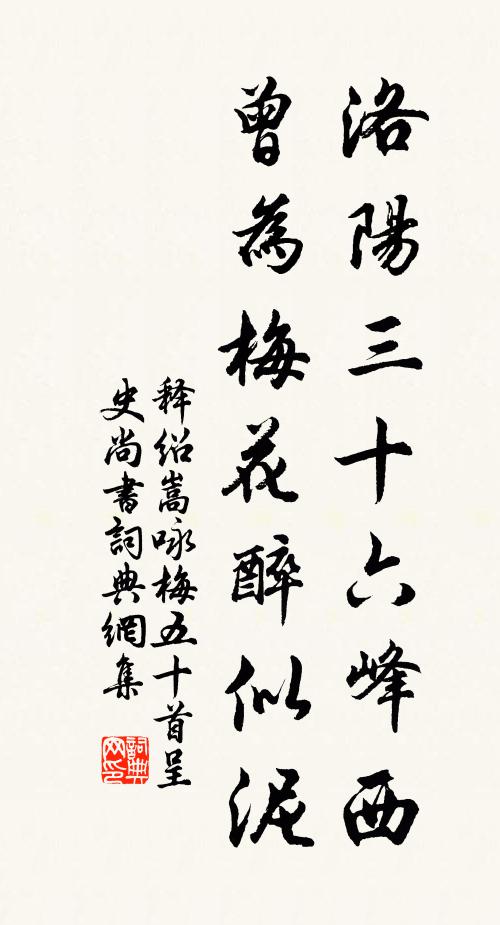 洛陽三十六峰西
曾為梅花醉似泥
释紹嵩咏梅五十首呈
史尚書詞典網集
詞典网印